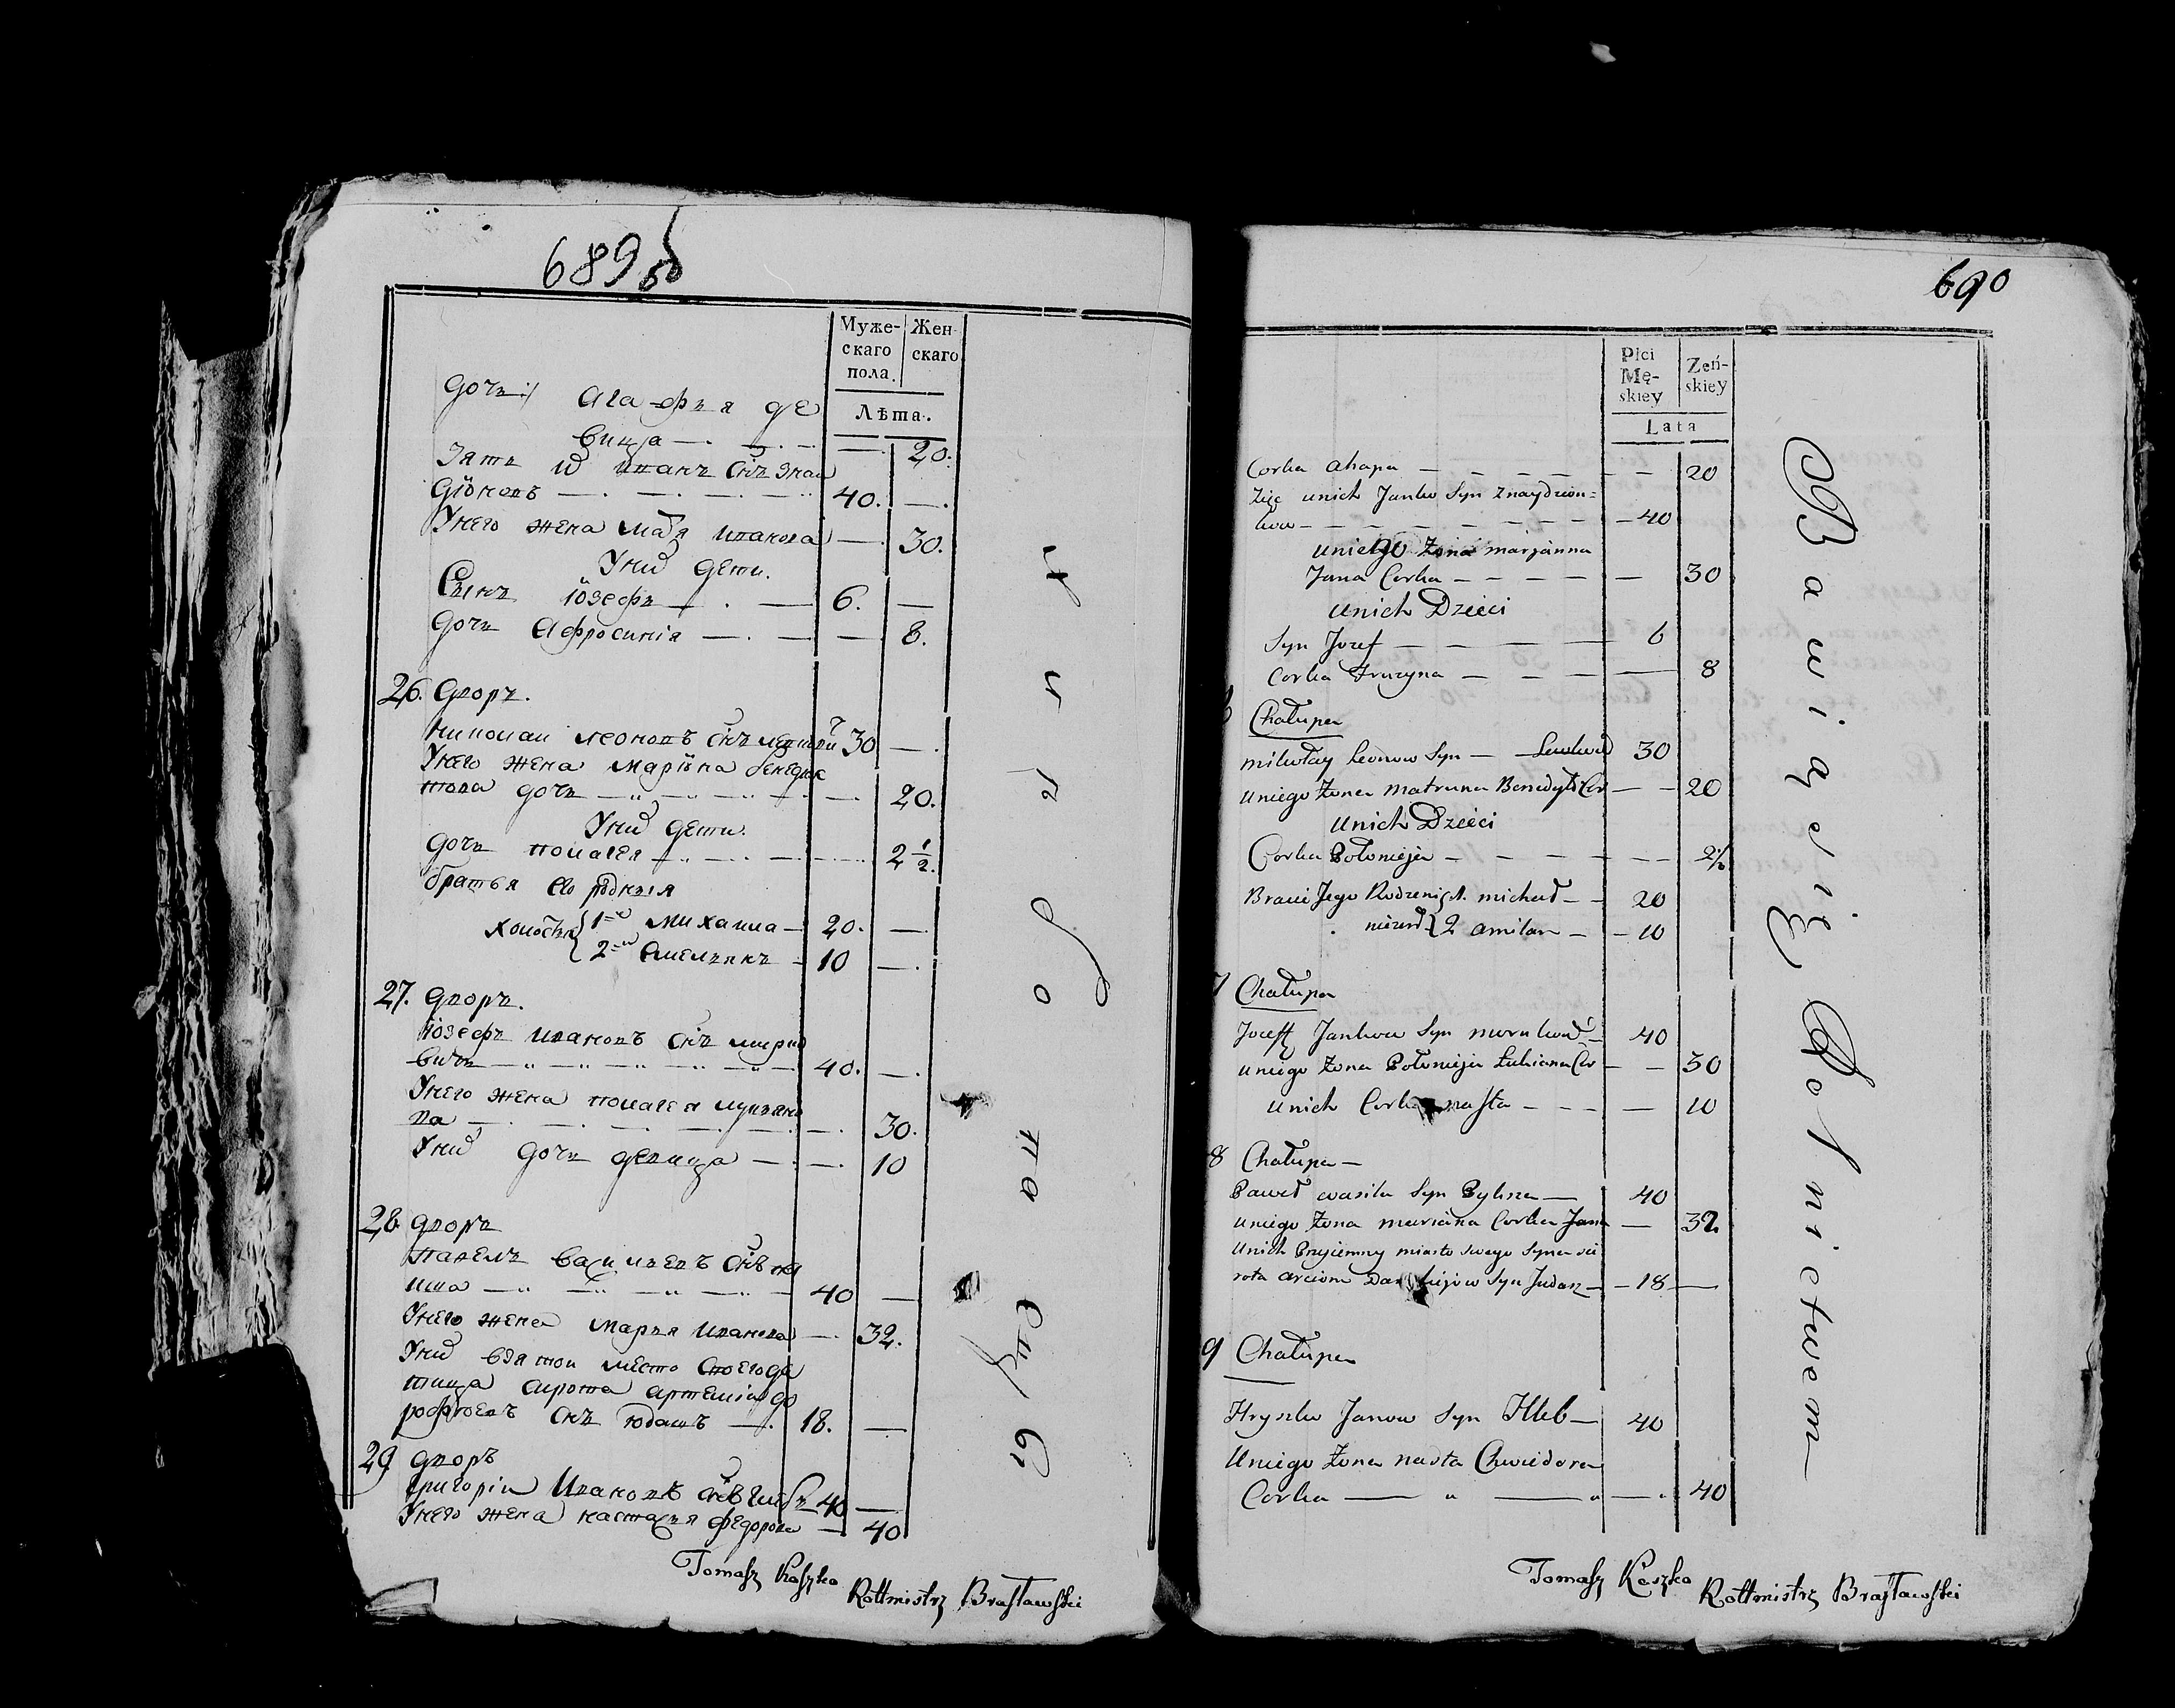 689 об
Муже-
скаго
пола.
Жен-
скаго
Лѣта.
дочь Агафья де
вица — — — 20.
Зять Иванъ Снъ Знай
діоновъ — — — 40. —
Унего жена Иванова — 30.
Уних дети.
Сынъ Іозефъ — 6. —
дочь Афросинія — — 8.
26. дворъ.
Николай Леоновъ Снъ 30 —
Унего жена Маріяна бенедик
това дочь — — 20.
Уних дети.
дочь Полагея — — 2 1/2.
братья его родныя
холосты 1й Михайла — 20. —
2й Емельянъ — 10 —
27. дворъ.
Іозефъ Ивановъ Снъ
вичъ — — 40. —
Унего жена Полагея Лукьяно
ва — — 30.
Уних дочь девица — — 10
28. дворъ
Павелъ Васильевъ Снъ
— — 40 —
Унего жена Марья Иванова — 32.
Уних взятой место своего де
тища сирота Артемій до
рофеевъ Снъ Юдашъ — 18. —
29 дворъ
Григорій Ивановъ Снъ Глебъ 40 —
Унего жена Настасья Федорова — 40
Tomasz Koszko Rottmistrz Brasławski
690
Płci
Mę-
skiey
Zeń-
skiey
Lata
Corka Ahapa — — 20
Zięć unich Janko Syn Znaydzion=
kow — — 40
uniego Zona marjanna
Jana Corka — — 30
unich Dzieci
Syn Jozef — — 6
Corka Fruzyna — — 8
Chałupa
mikołay Leonow Syn — 30
uniego Zona matruna Benedykt Cor — 20
unich Dzieci
Corka Połonieja — — 2½
Bracia Jego Rodzeni 1. michał — 20
2 amilan — 10
7 Chałupa
Jozeff Jankow Syn 40
uniego Zona Połonieja Łukiana Cor — 30
unich Corka nasta — — 10
8 Chałupa —
Paweł wasila Syn — 40
uniego Zona mariana Corka Jana — 32.
unich Przyiemny miasto swego Syna sie
rota arciom Syn Judasz — 18 —
9 Chałupa
Hryszko Janow Syn Hleb — 40
Uniego Zona nasta Chwiedora
Corka — — 40
Bawiąsię Rolnictwem
Tomasz Koszko Rottmistrz Brasławski